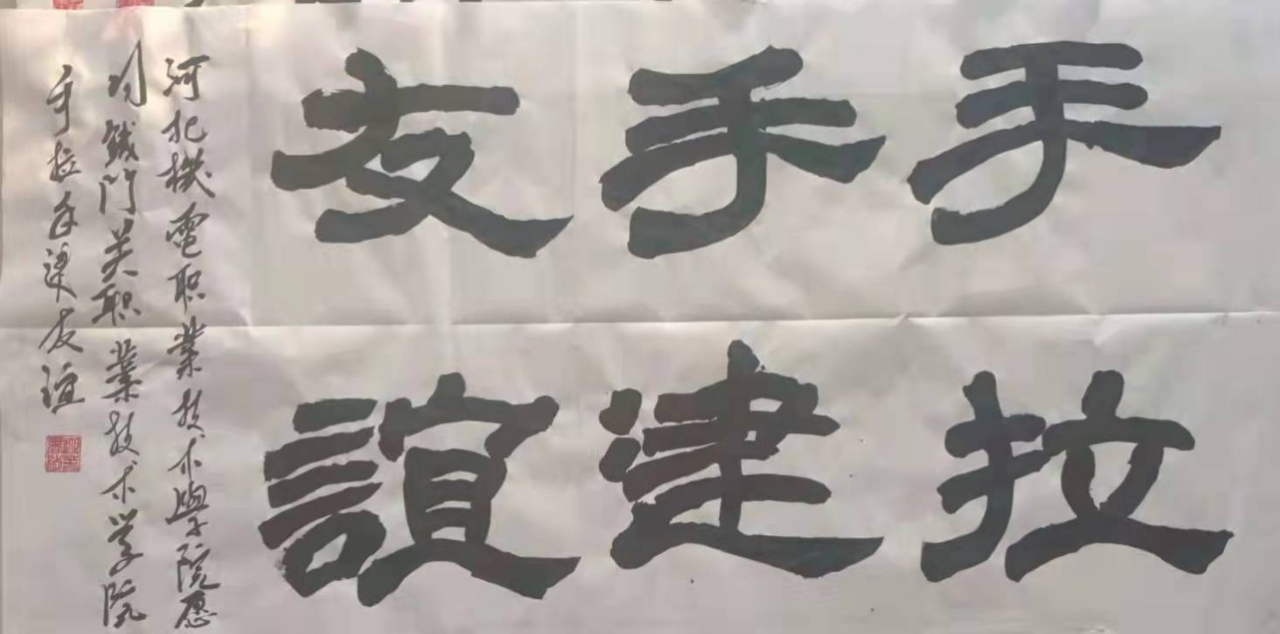 手拉
手建
友誼
河北機電职業技术學院愿
同鐵门关职業技术学院
手拉手建友谊